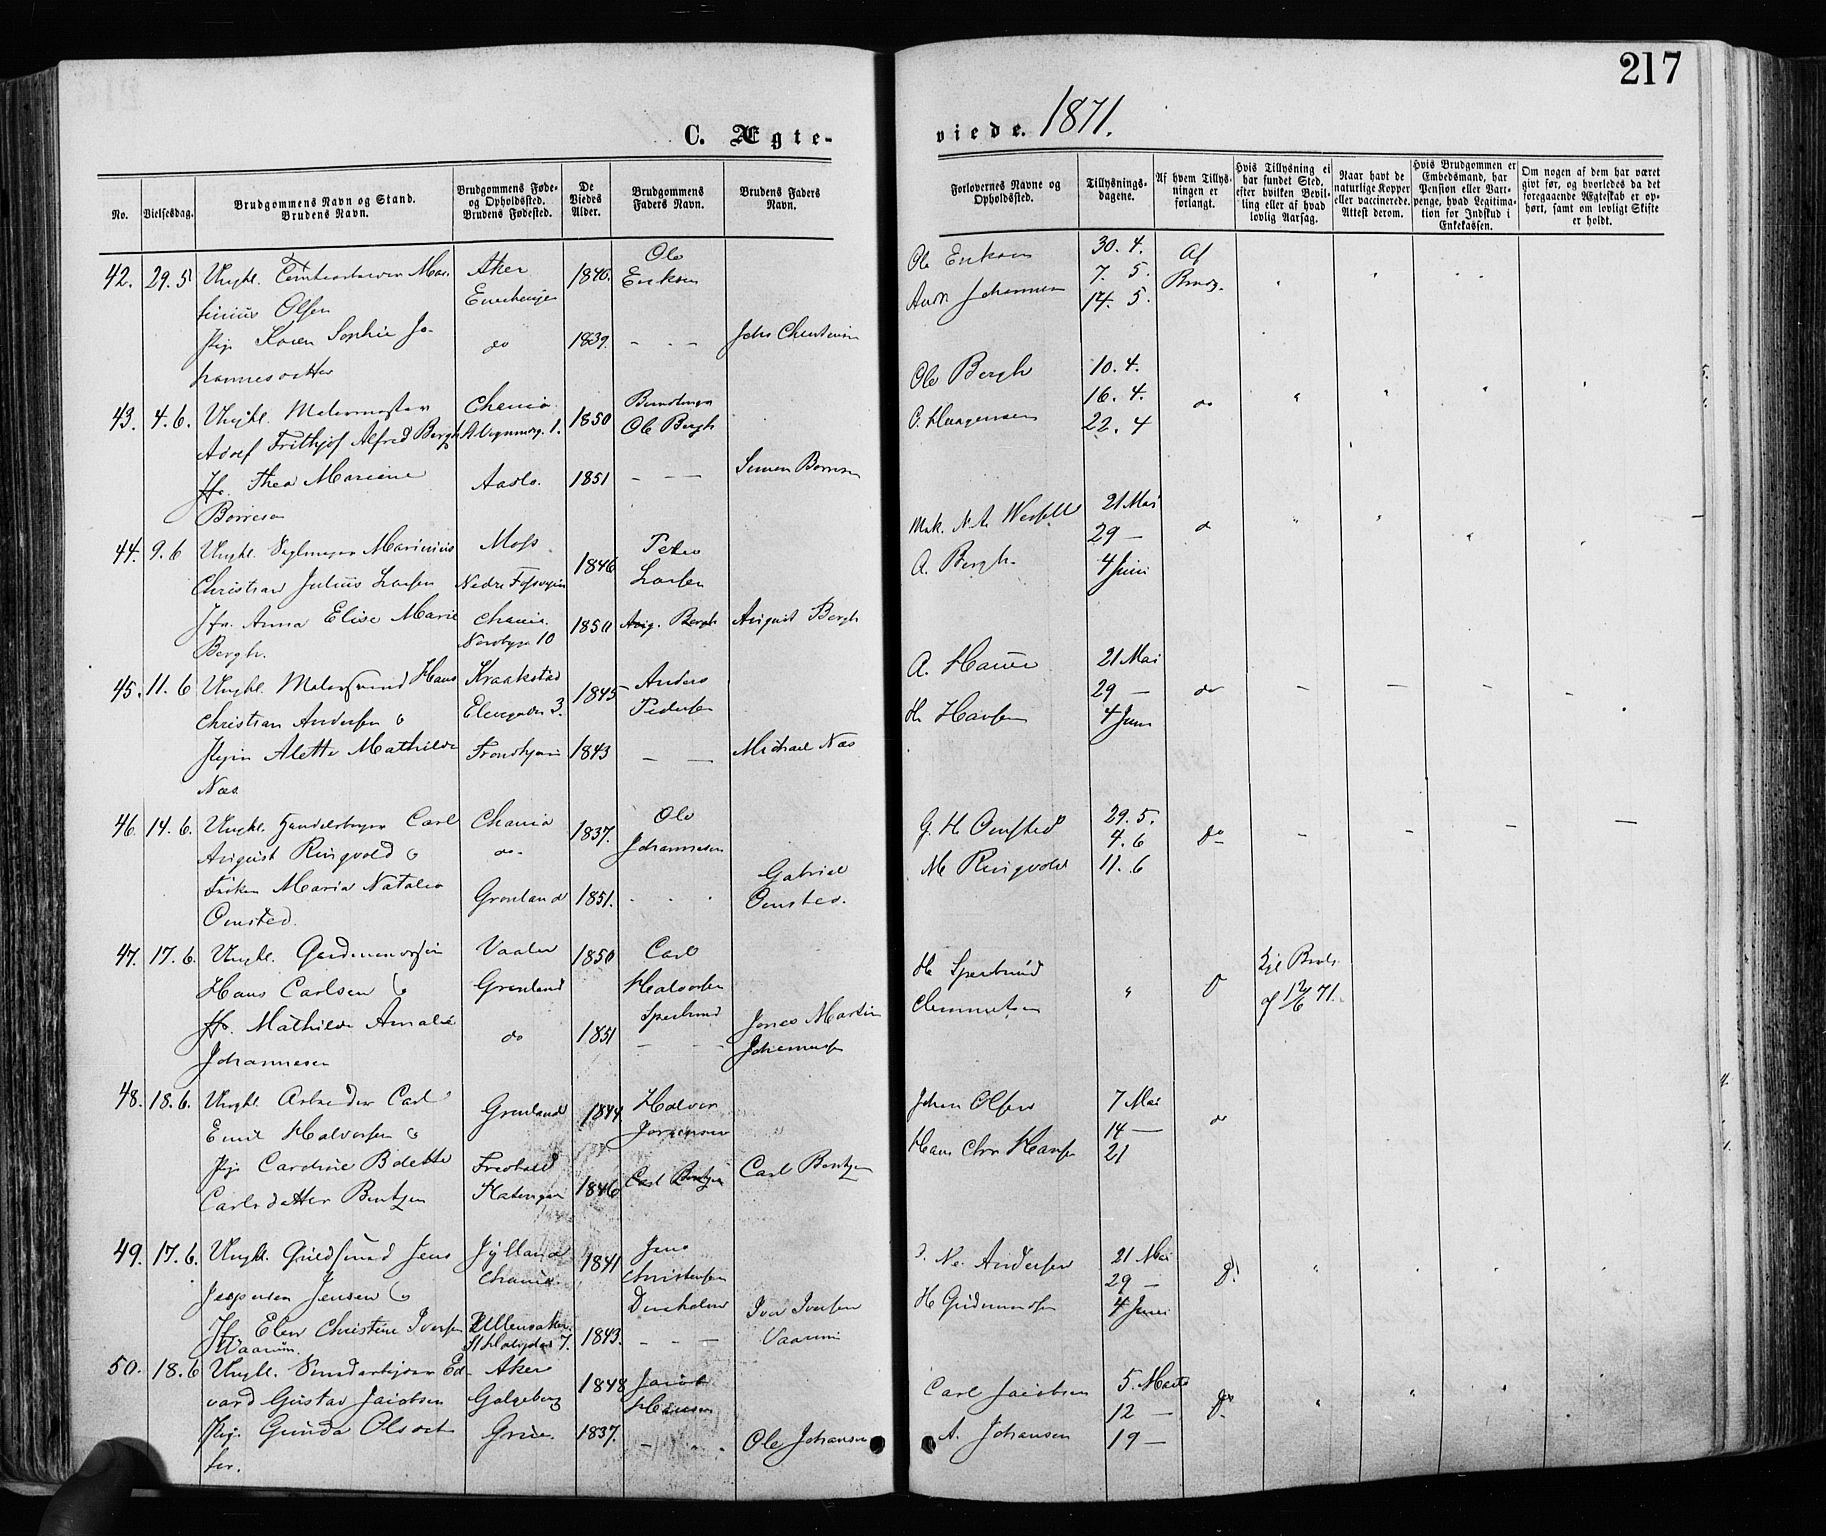 217
C. Ægte-
viede. 1871.
No.
Vielsesdag.
Brudgommens Navn og Stand.
Brudens Navn.
Brudgommens Føde-
og Opholdssted.
Brudens Fødested.
De
Viedes
Alder.
Brudgommens
Faders Navn.
Brudens Faders
Navn.
Forlovernes Navne og
Opholdssted.
Tillysnings-
dagene.
Af hvem Tillys-
ningen er
forlangt.
Hvis Tillysning ei
har fundet Sted,
efter hvilken Bevil-
ling eller af hvad
lovlig Aarsag.
Naar havt de
naturlige Kopper
eller vaccinerede.
Attest derom.
Hvis Brudgommen er
Embedsmand, har
Pension eller Vart-
penge, hvad Legitima-
tion for Indskud i
Enkekassen.
Om nogen af dem har været
givt før, og hvorledes da det
foregaaende Ægteskab er op-
hørt, samt om lovligt Skifte
er holdt.
42. 29. 5 Ungkl. Mar- Aker 1846. Ole Ole Eriksen 30. 4. Af
tinius Olsen Eriksen Johannesen 7. 5. Brudg.
14. 5.
Pige Karen Sophie Jo- do 1839. - - -
hannesdatter
43. 4. 6. Ungkl. Malermester Chania 1850 Ole Bergh Ole Bergh 10. 4. do
Adolf Frithjof Alfred Bergh 1. 16. 4.
22. 4
Jfr. Thea Mariane Aaslo. 1851 - - - Simen Borresen
Borresen
44. 9. 6 Ungkl. Seglmager Marinius Moss 1846 Peter N. A. 21 Mai do
Christian Julius Larsen Nedre Larsen A. Bergh. 29 -
4 Juni
Jfr. Anna Elise Marie Chania. 1850 Aug. Bergh August Bergh
Bergh. 10
45. 11. 6 Ungkl. Malersvend Hans Kraakstad 1845 Anders A. 21 Mai do
Christian Andersen & 3. Pedersen H. Hansen 29 -
4 Juni
Pigen Alette Mathilde Trondhjem 1843 - - Michael Næs
Næs
46. 14. 6. Ungkl. Carl Chania 1837. Ole G. H. Omsted 29. 5. do
August Ringvold & do. Johannesen M. Ringvold 4. 6
11. 6
Frøken Maria Natalia Grønland 1851. - - - Gabriel
Omsted. Omsted.
47. 17. 6. Ungkl. Vaaler 1850 Carl H. Sperbund Kgl Bevl.
Hans Carlsen & Grønland Halvorsen Clemmetsen af 12/6 71.
Sperbund
Jfr. Mathilde Amalie do 1851 - - Jones Martin
Johannesen Johannesen
48. 18. 6. Ungkl. Arbeider Carl Grønland 1844 Halvor Johan Olsen 7 Mai do
Emil Halvorsen & Jørgensen Hans Chr. Hansen 14 -
21
Pige Caroline Bolette Fredhald 1846 Carl Bentzen Carl Bentzen
Carlsdatter Bentzen
49. 17. 6. Ungkl. Guldsmed Jens Jylland 1841 Jens Andersen 21 Mai
Jespersen Jensen & Chania. Christensen H. Gudmundsen 29 -
4 Juni
Jfr. Elen Christine Iversen Ullensaker. 1843. - - - Iver Iversen
Vaarum. 7. Vaarum
50. 18. 6 Ungkl. Ed- Aker 1848 Jacob Carl Jacobsen 5. Marts do
vard Gustav Jacobsen Galgeberg Hansen A. Johansen 12 -
19 -
Pige Gunda Olsdat- Grue. 1837. - - - Ole Johansen
ter.